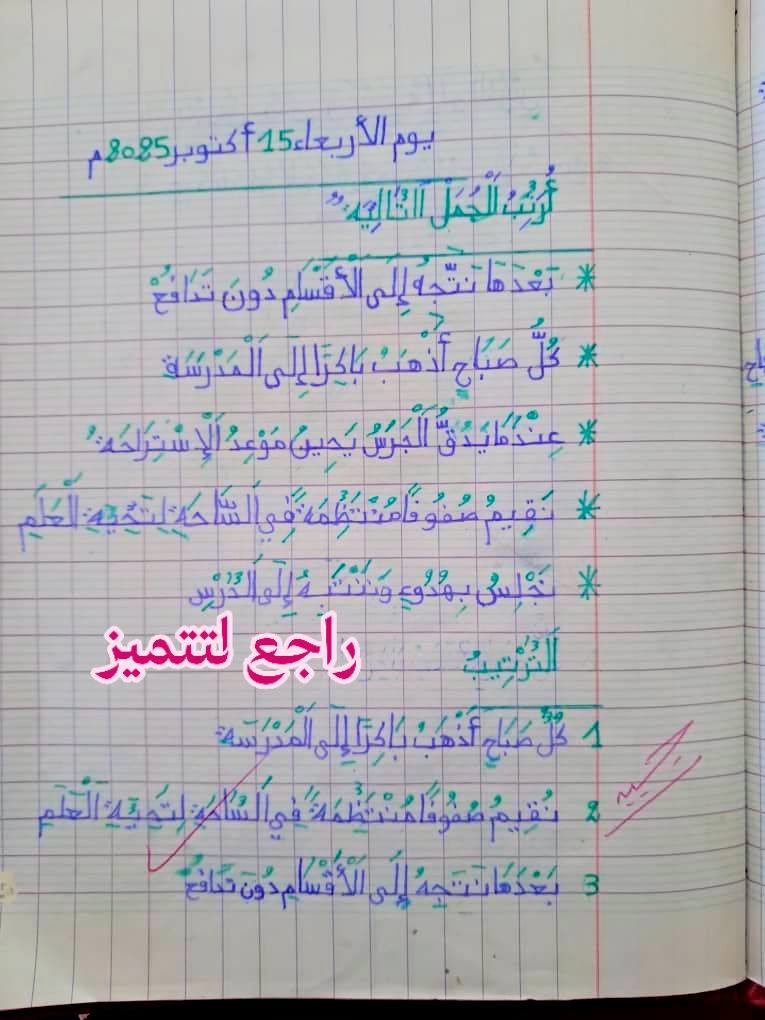 يوم الأربعاء 15 أكتوبر 2025م
أُرَتِّبُ الْجُمَلَ التَّالِيَةَ:
* بَعْدَهَا نَتَّجِهُ إِلَى الْأَقْسَامِ دُونَ تَدَافُعٍ
* كُلَّ صَبَاحٍ أَذْهَبُ بَاكِرًا إِلَى الْمَدْرَسَةِ
* عِنْدَمَا يَدُقُّ الْجَرَسُ يَحِينُ مَوْعِدُ الْإِسْتِرَاحَةِ
* نُقِيمُ صُفُوفًا مُنْتَظِمَةً فِي السَّاحَةِ لِتَحِيَّةِ الْعَلَمِ
* نَجْلِسُ بِهُدُوءٍ وَنَنْتَبِهُ إِلَى الدَّرْسِ
راجع لتتميز
التَّرْتِيبُ
1 كُلَّ صَبَاحٍ أَذْهَبُ بَاكِرًا إِلَى الْمَدْرَسَةِ
2 نُقِيمُ صُفُوفًا مُنْتَظِمَةً فِي السَّاحَةِ لِتَحِيَّةِ الْعَلَمِ
3 بَعْدَهَا نَتَّجِهُ إِلَى الْأَقْسَامِ دُونَ تَدَافُعٍ